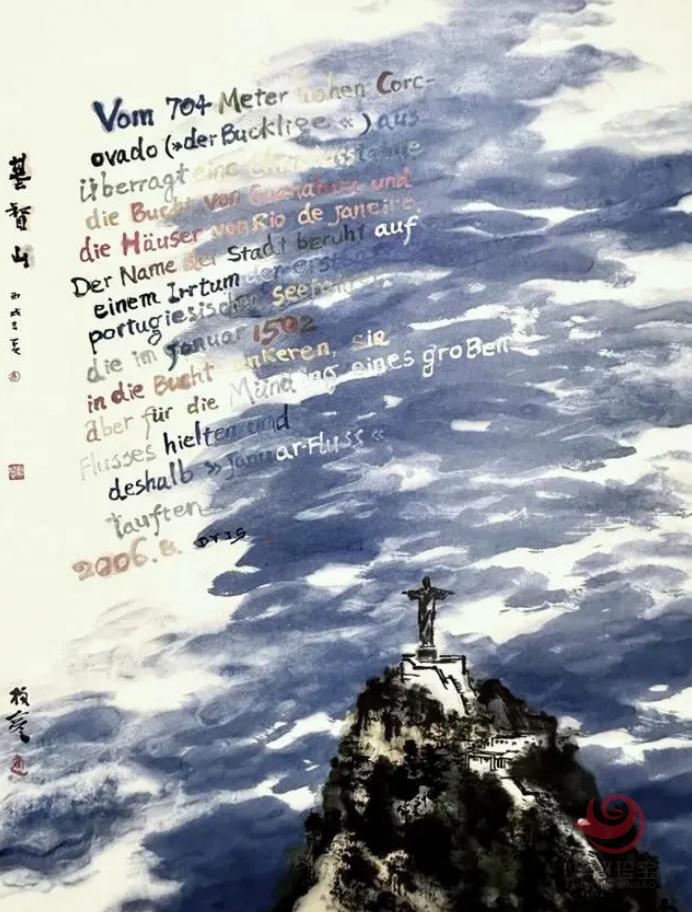 Vom 704 Meter hohen Corc-
ovado (»der Bucklige«) aus
überragt eine
die Bucht von Guanabara und
die Häuser von Rio de Janeiro.
Der Name der Stadt beruht auf
einem Irrtum der erst
portugiesischer Seefahrer,
die im Januar 1502
in die Bucht ankeren, sie
aber für die Mündung eines großen
Flusses hielten und
deshalb »Januar-Fluss«
tauften
2006.8.
基督山
丙戌